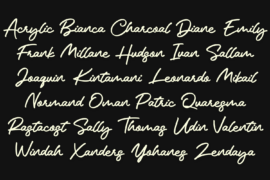 Acrylic Bianca Charcoal Diane Emily
Frank Millane Hudson Ivan Sallam
Joaquin Kintamani Leonardo Mikail
Normand Oman Patric Quaresma
Rastacost Sally Thomas Udin Valentin
Windah Xanders Yohanes Zendaya